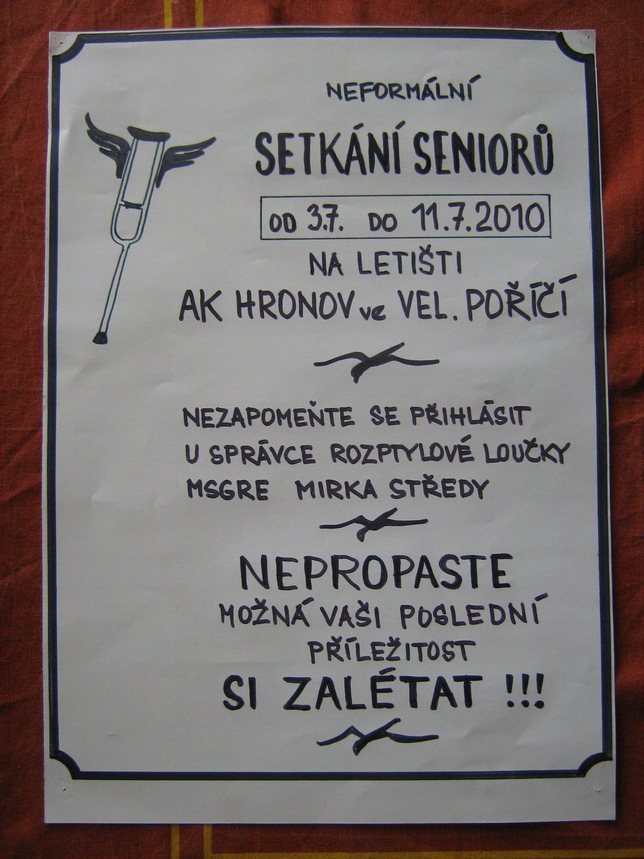 NEFORMÁLNÍ
SETKÁNÍ SENIORŮ
OD 3.7. DO 11.7.2010
NA LETIŠTI
AK HRONOV ve VEL. POŘÍČÍ
NEZAPOMEŇTE SE PŘIHLÁSIT
U SPRÁVCE ROZPTYLOVÉ LOUČKY
MSGRE MIRKA STŘEDY
NEPROPASTE
MOŽNÁ VAŠI POSLEDNÍ
PŘÍLEŽITOST
SI ZALÉTAT !!!